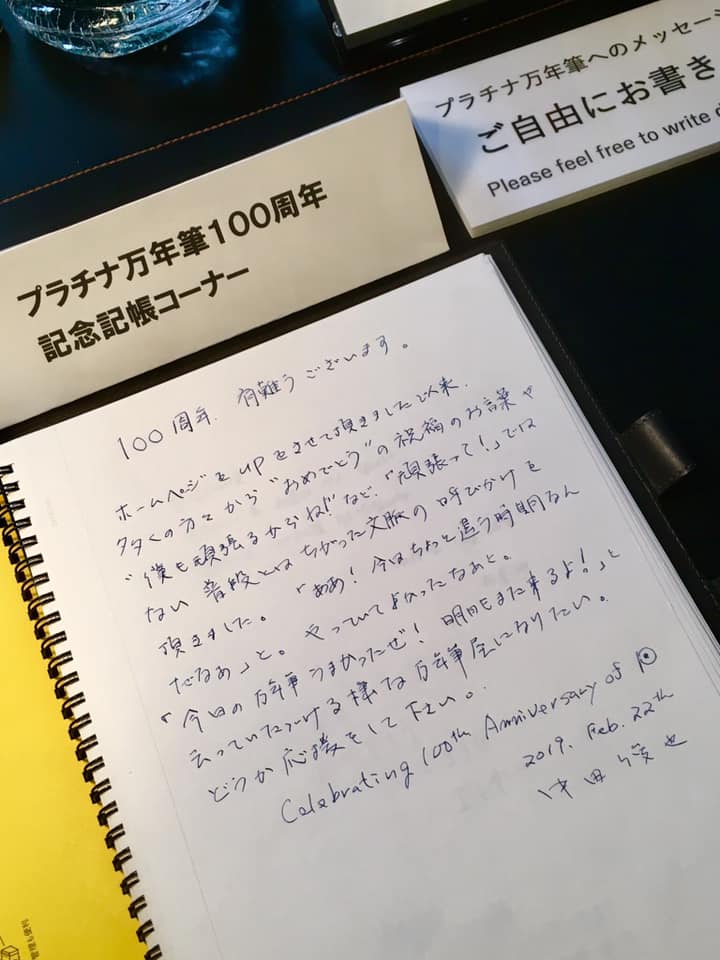 プラチナ万年筆へのメッセージ
ご自由にお書き
Please feel free to write
プラチナ万年筆100周年
記念記帳コーナー
100周年、有難うございます。
ホームページをupをさせて頂きました以来、
多くの方々から"おめでとう"の祝福のお言葉や
"僕も頑張るからね!"など、「頑張って!」では
ない普段とはちがった文脈の呼びかけを
頂きました。「ああ!今はちょっと違う時期なん
だなぁ」と。やっていてよかったなぁと。
「今日の万年筆うまかったぜ!明日もまた来るよ!」と
云っていただける様な万年筆屋になりたい。
どうか応援をして下さい。
Celebrating 100th Anniversary of
2019. Feb. 22th
中田俊也